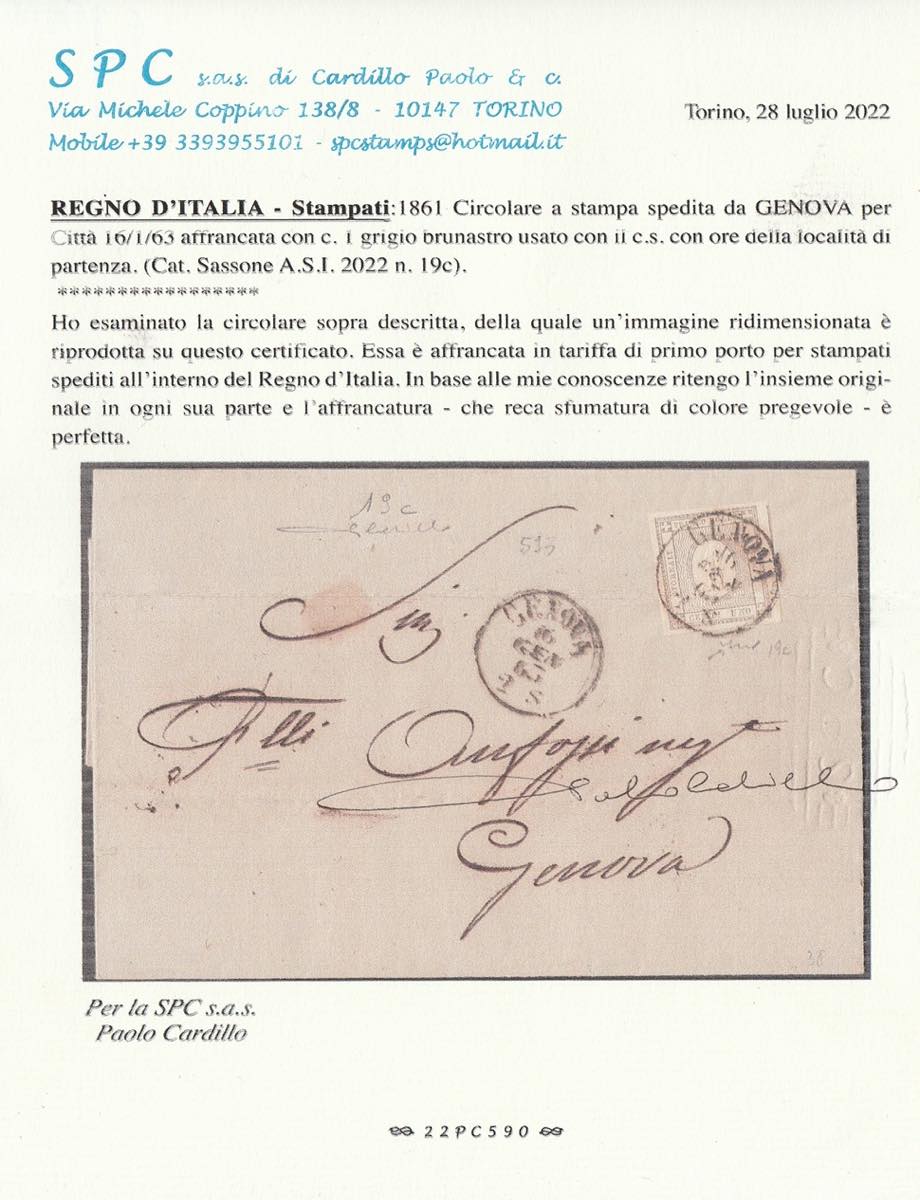 SPC s.a.s. di Cardillo Paolo & c.
Via Michele Coppino 138/8 - 10147 TORINO
Mobile +39 3393955101 - spcstamps@hotmail.it
Torino, 28 luglio 2022
REGNO D'ITALIA - Stampati:1861 Circolare a stampa spedita da GENOVA per
Città 16/1/63 affrancata con c. 1 grigio brunastro usato con il c.s. con ore della località di
partenza. (Cat. Sassone A.S.I. 2022 n. 19c).
*****************
Ho esaminato la circolare sopra descritta, della quale un'immagine ridimensionata è
riprodotta su questo certificato. Essa è affrancata in tariffa di primo porto per stampati
spediti all'interno del Regno d'Italia. In base alle mie conoscenze ritengo l'insieme origi-
nale in ogni sua parte e l'affrancatura - che reca sfumatura di colore pregevole - è
perfetta.
19c
593
GENOVA
GENOVA
16
GEN
63
UNO
19c
Flli
Genova
38
Per la SPC s.a.s.
Paolo Cardillo
22PC590